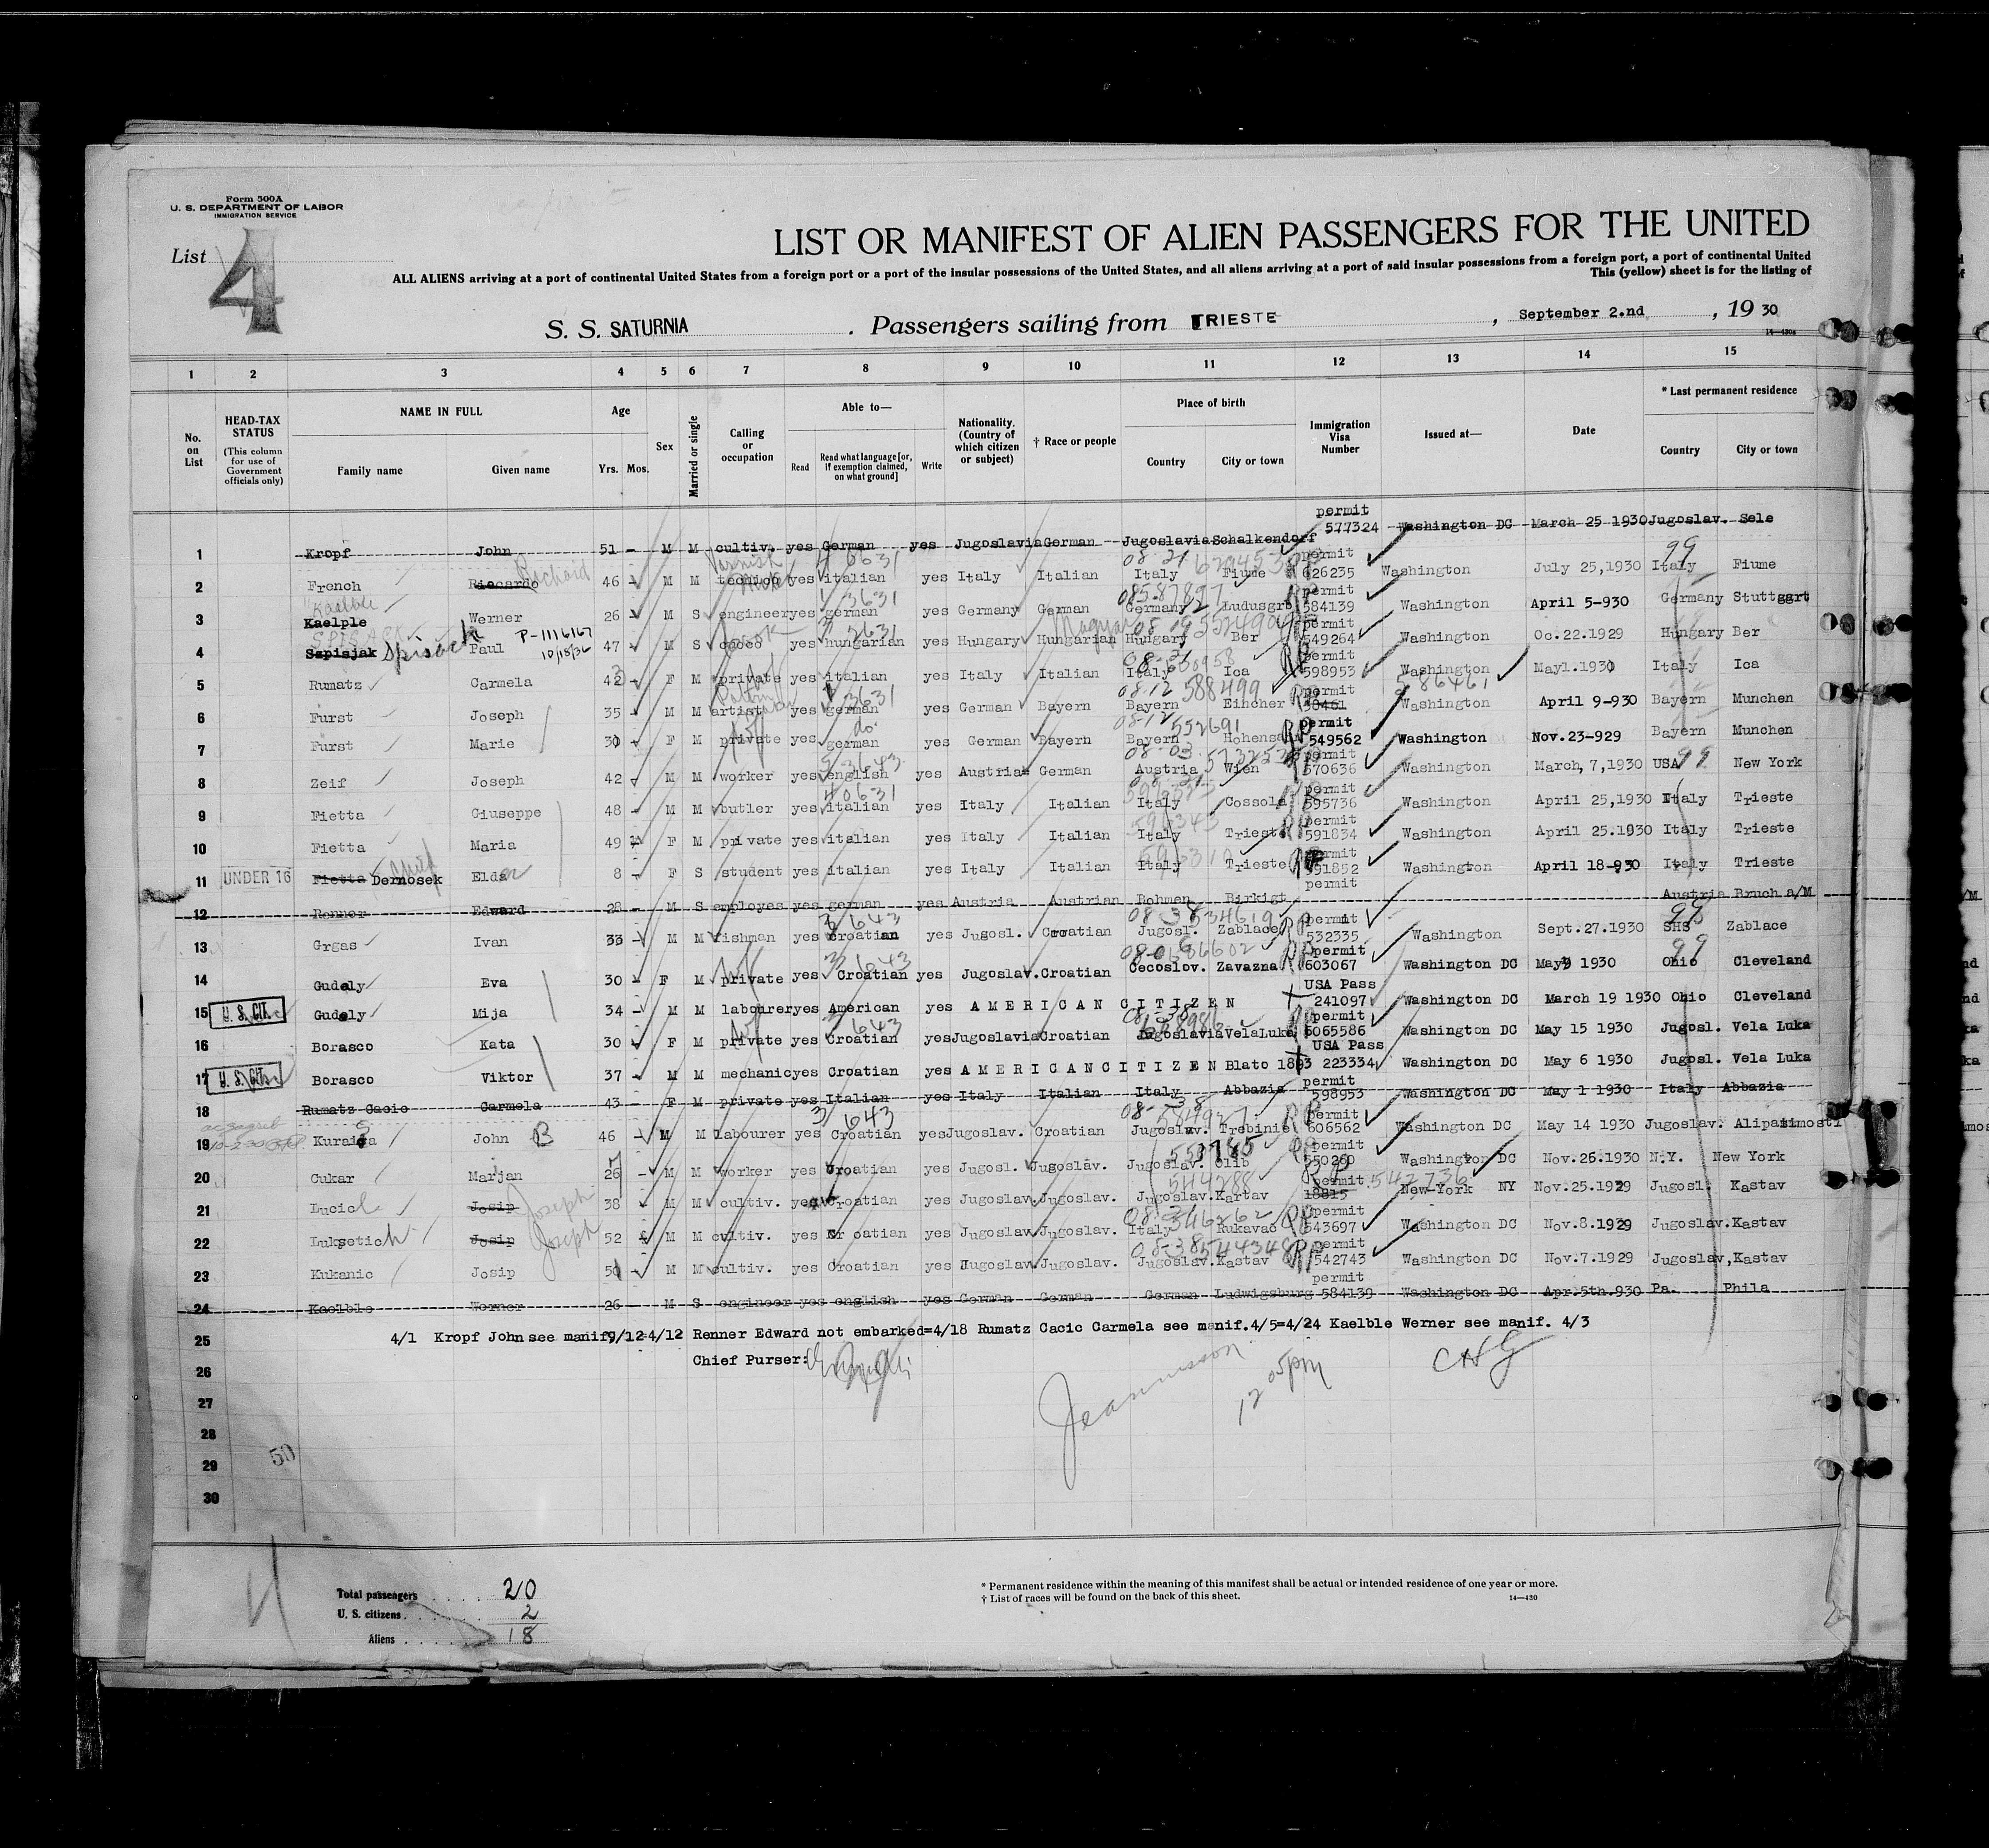 Form 500A
U. S. DEPARTMENT OF LABOR
IMMIGRATION SERVICE
List 4
LIST OR MANIFEST OF ALIEN PASSENGERS FOR THE UNITED
ALL ALIENS arriving at a port of continental United States from a foreign port or a port of the insular possessions of the United States, and all aliens arriving at a port of said insular possessions from a foreign port, a port of continental United
This (yellow) sheet is for the listing of
S. S. SATURNIA . Passengers sailing from TRIESTE , September 2.nd , 19 30
14—430a
1 2 3 4 5 6 7 8 9 10 11 12 13 14 15
No. on List HEAD-TAX STATUS (This column for use of Government officials only) NAME IN FULL Family name Given name Age Yrs. Mos. Sex Married or single Calling or occupation Able to— Read Read what language [or, if exemption claimed, on what ground] Write Nationality. (Country of which citizen or subject) † Race or people Place of birth Country City or town Immigration Visa Number Issued at— Date * Last permanent residence Country City or town
1 Kropf John 51 M M cultiv. yes German yes Jugoslavia German Jugoslavia Schalkendorf permit 577324 Washington DC March 25 1930 Jugoslav. Sele
2 French Riccardo Richard 46 M M technco yes italian yes Italy Italian Italy Fiume permit 626235 Washington July 25,1930 Italy Fiume
3 Kaelble Kaelple Werner 26 M S engineer yes german yes Germany German Germany Ludusgrb permit 584139 Washington April 5-930 Germany Stuttggrt
4 SPISACK Sspisjak Spisack Paul P-1116167 10/15/36 47 M S cook yes hungarian yes Hungary Hungarian Magyar Hungary Ber permit 549264 Washington Oc.22.1929 Hungary Ber
5 Rumatz Carmela 42 F M private yes italian yes Italy Italian Italy Ica permit 598953 Washington May1.1930 Italy Ica
6 Furst Joseph 35 M M artist yes german yes German Bayern Bayern Eincher 588499 permit 58461 586461 Washington April 9-930 Bayern Munchen
7 Furst Marie 30 F M private yes do. german yes German Bayern Bayern Hohensa 552691 permit 549562 Washington Nov.23-929 Bayern Munchen
8 Zeif Joseph 42 M M worker yes english yes Austrian German Austria Wien permit 570636 Washington March,7,1930 USA 99 New York
9 Fietta Giuseppe 48 M M butler yes italian yes Italy Italian Italy Cossola permit 595736 Washington April 25,1930 Italy Trieste
10 Fietta Maria 49 F M private yes italian yes Italy Italian Italy Trieste permit 591834 Washington April 25.1930 Italy Trieste
11 UNDER 16 Fietta Dernosek Elda 8 F S student yes italian yes Italy Italian Italy Trieste permit 591852 Washington April 18-930 Italy Trieste
12 Renner Edward 28 M S employes yes german yes Austria Austrian Bohmen Birkigt permit Austria Bruch a/M
13 Grgas Ivan 33 M M fishman yes Croatian yes Jugosl. Croatian Jugosl. Zablace 534619 permit 532335 Washington Sept.27.1930 SHS 99 Zablace
14 Gudely Eva 30 F M private yes Croatian yes Jugoslav. Croatian Cecoslov. Zavazna permit 603067 Washington DC May9 1930 Ohio 99 Cleveland
15 U. S. CIT. Gudely Mija 34 M M labourer yes American yes AMERICAN CITIZEN USA Pass 241097 Washington DC March 19 1930 Ohio Cleveland
16 Borasco Kata 30 F M private yes Croatian yes Jugoslavia Croatian Jugoslavia VelaLuka permit 6065586 Washington DC May 15 1930 Jugosl. Vela Luka
17 U. S. CIT. Borasco Viktor 37 M M mechanic yes Croatian yes AMERICAN CITIZEN Blato 1893 USA Pass 223334 Washington DC May 6 1930 Jugosl. Vela Luka
18 Rumatz Cacic Carmela 43 F M private yes Italian yes Italy Italian Italy Abbazia permit 598953 Washington DC May 1 1930 Italy Abbazia
19 Kuraisa John B 46 M M labourer yes Croatian yes Jugoslav. Croatian Jugoslav. Trebinie permit 606562 Washington DC May 14 1930 Jugoslav. Alipasimosti
20 Cukar Marjan 26 M M worker yes Croatian yes Jugosl. Jugoslav. Jugoslav. Olib permit 550260 Washington DC Nov.26.1930 N.Y. New York
21 Lucic Josip Joseph 38 M M cultiv. yes Croatian yes Jugoslav. Jugoslav. Jugoslav. Kartav 544288 permit 18815 542736 New York NY Nov.25.1929 Jugosl. Kastav
22 Luksetich Josip Joseph 52 M M cultiv. yes Croatian yes Jugoslav. Jugoslav. Italy Rukavac 546262 permit 543697 Washington DC Nov.8.1929 Jugoslav. Kastav
23 Kukanic Josip 50 M M cultiv. yes Croatian yes Jugoslav. Jugoslav. Jugoslav. Kastav 544348 permit 542743 Washington DC Nov.7.1929 Jugoslav, Kastav
24 Kaelble Werner 26 M S engineer yes english yes German German German Ludwigsburg permit 584139 Washington DC Apr.5th.930 Pa. Phila
25 4/1 Kropf John see manif.9/12=4/12 Renner Edward not embarked=4/18 Rumatz Cacic Carmela see manif.4/5=4/24 Kaelble Werner see manif. 4/3
26 Chief Purser:
12 05pm
27
28
29
30
50
Total passengers 20
U. S. citizens 2
Aliens 18
* Permanent residence within the meaning of this manifest shall be actual or intended residence of one year or more.
† List of races will be found on the back of this sheet.
14—430